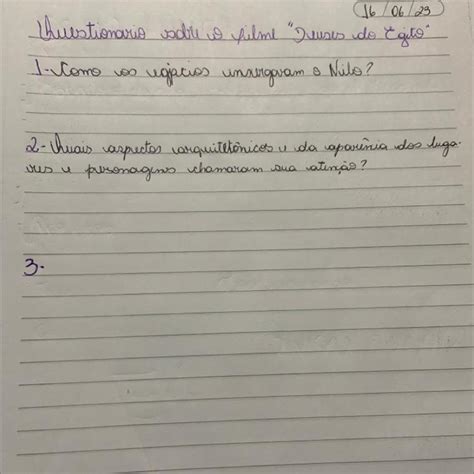 16/06/23
Questionario sobre o filme "Deuses do Egito"
1-Como os egipcios enxergavam o Nilo?
2-Quais aspectos arquitetônicos e da aparência dos luga-
res e personagens chamaram sua atenção?
3-